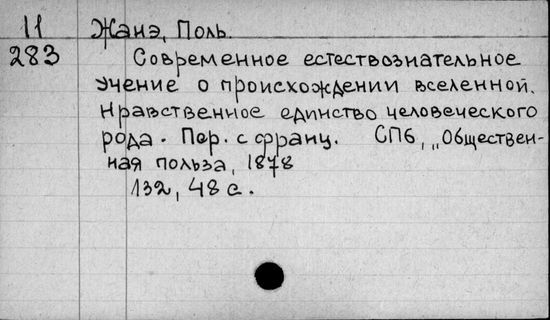 11 Жанэ, Поль.
283 Современное естествознательное
учение о происхождении вселенной.
Нравственное единство человеческого
рода. Пер. с франц. СПб, „Обществен-
ная польза, 1878
132, 48 с.